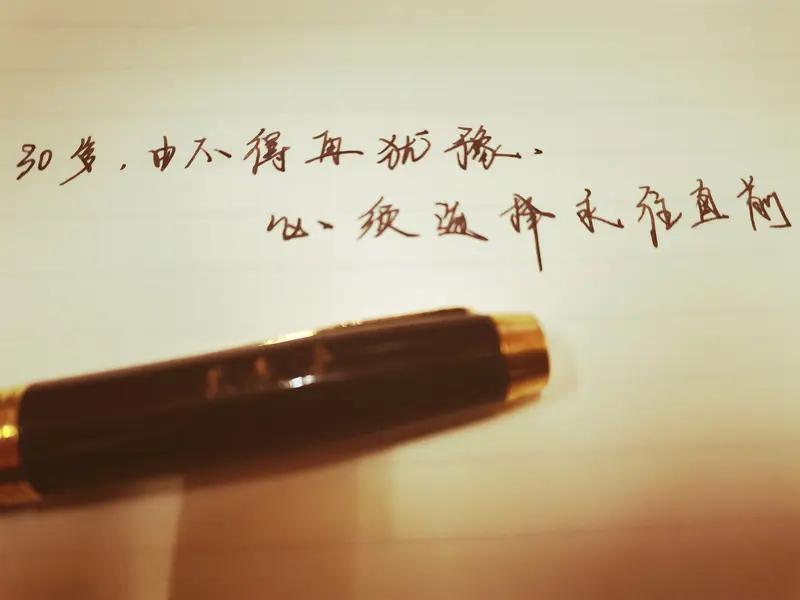 30岁,由不得再犹豫.
必须选择永往直前